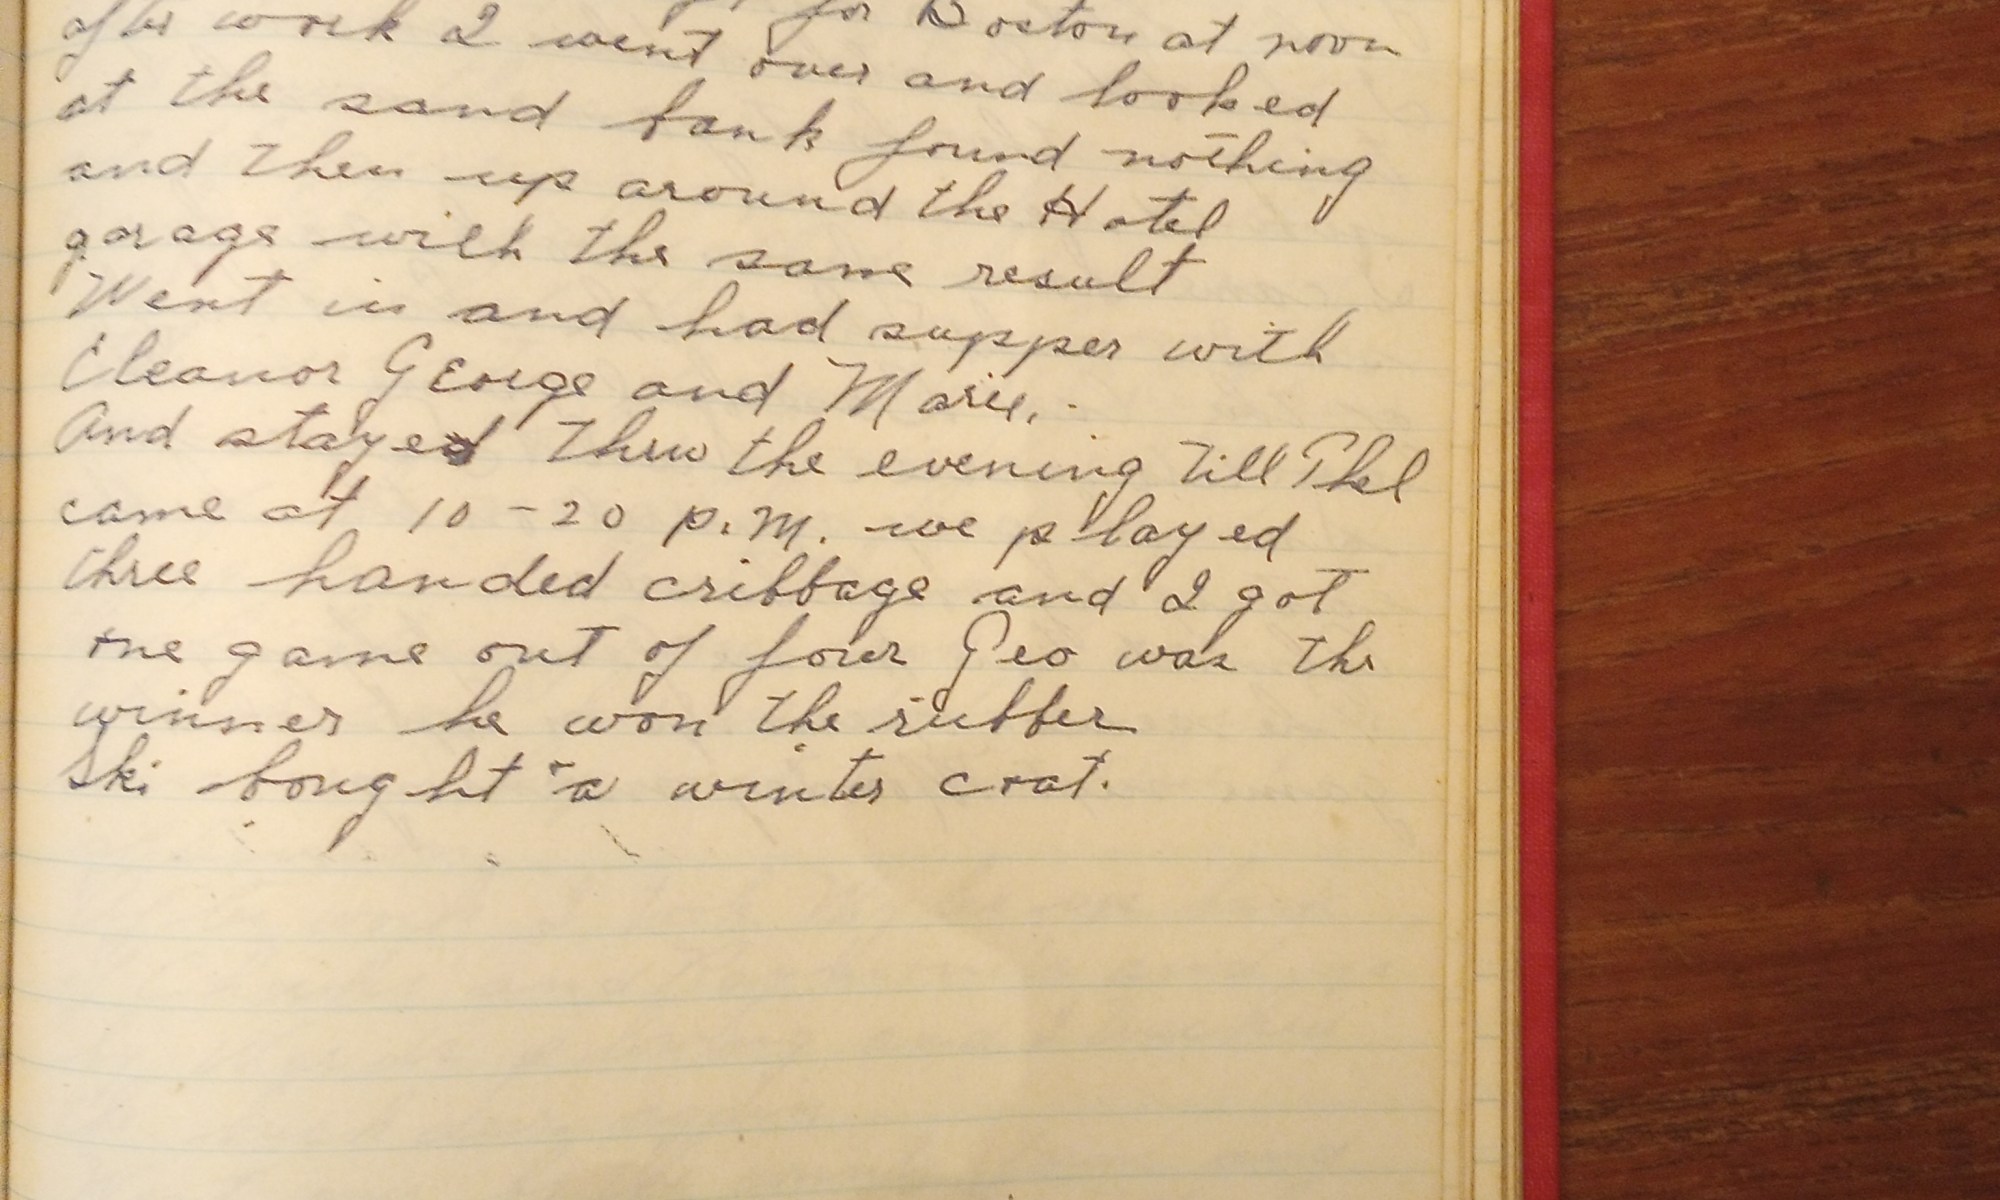 for Boston at noon
after work I went over and looked
at the sand bank found nothing
and then up around the Hotel
garage with the same result
Went in and had supper with
Eleanor George and Marie.
And stayed thru the evening till Phil
came at 10-20 P.M. we played
three handed cribbage and I got
one game out of four Geo was the
winner he won the rubber
Ski bought a winter coat.